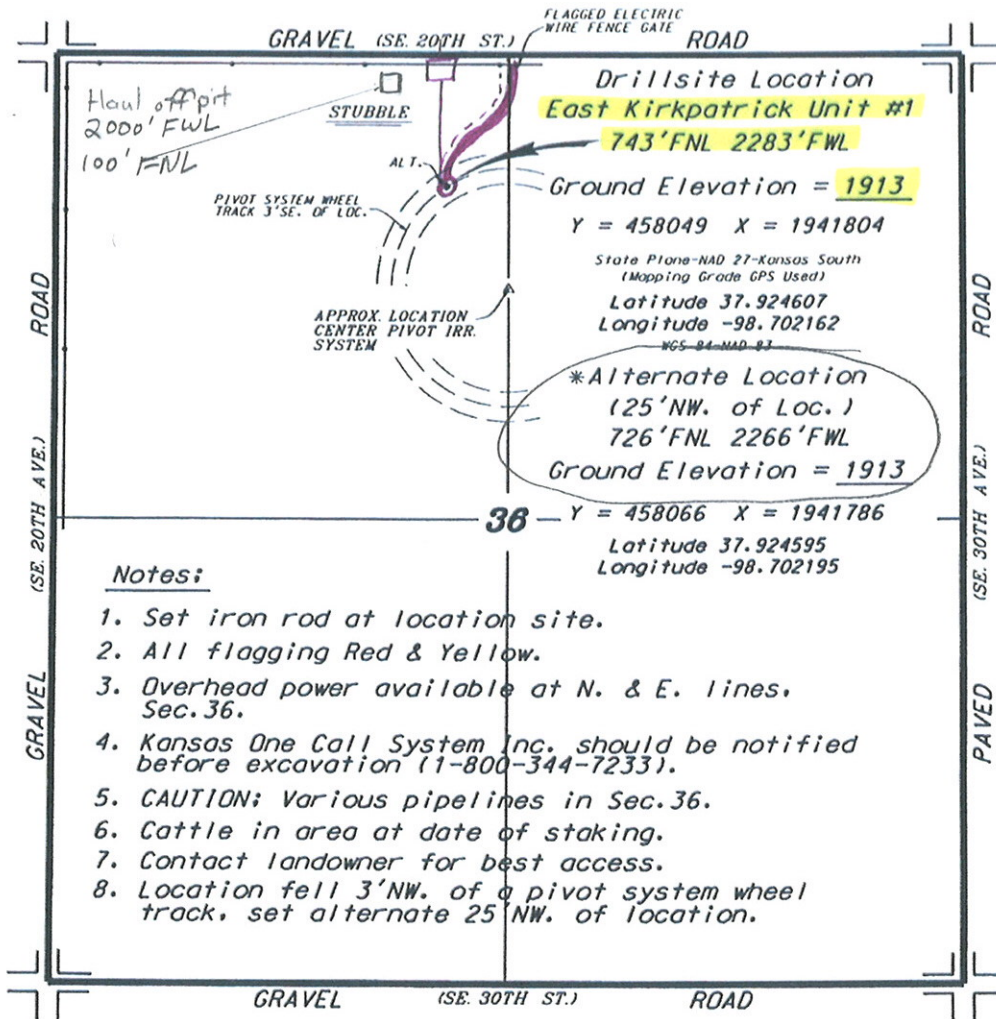 FLAGGED ELECTRIC
WIRE FENCE GATE
GRAVEL (SE. 20TH ST.) ROAD
Haul off pit
2000' FWL
100' FNL
STUBBLE
ALT.
PIVOT SYSTEM WHEEL
TRACK 3'SE. OF LOC.
APPROX. LOCATION
CENTER PIVOT IRR.
SYSTEM
Drillsite Location
East Kirkpatrick Unit #1
743'FNL 2283'FWL
Ground Elevation = 1913
Y = 458049 X = 1941804
State Plane-NAD 27-Kansas South
(Mapping Grade GPS Used)
Latitude 37.924607
Longitude -98.702162
WGS 84-NAD 83
*Alternate Location
(25'NW. of Loc.)
726'FNL 2266'FWL
Ground Elevation = 1913
Y = 458066 X = 1941786
Latitude 37.924595
Longitude -98.702195
36
ROAD
(SE. 20TH AVE.)
GRAVEL
ROAD
(SE. 30TH AVE.)
PAVED
Notes:
1. Set iron rod at location site.
2. All flagging Red & Yellow.
3. Overhead power available at N. & E. lines,
Sec.36.
4. Kansas One Call System Inc. should be notified
before excavation (1-800-344-7233).
5. CAUTION: Various pipelines in Sec.36.
6. Cattle in area at date of staking.
7. Contact landowner for best access.
8. Location fell 3'NW. of a pivot system wheel
track, set alternate 25'NW. of location.
GRAVEL (SE. 30TH ST.) ROAD